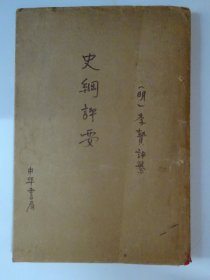 （明）李贄評纂
史綱評要
中華書局